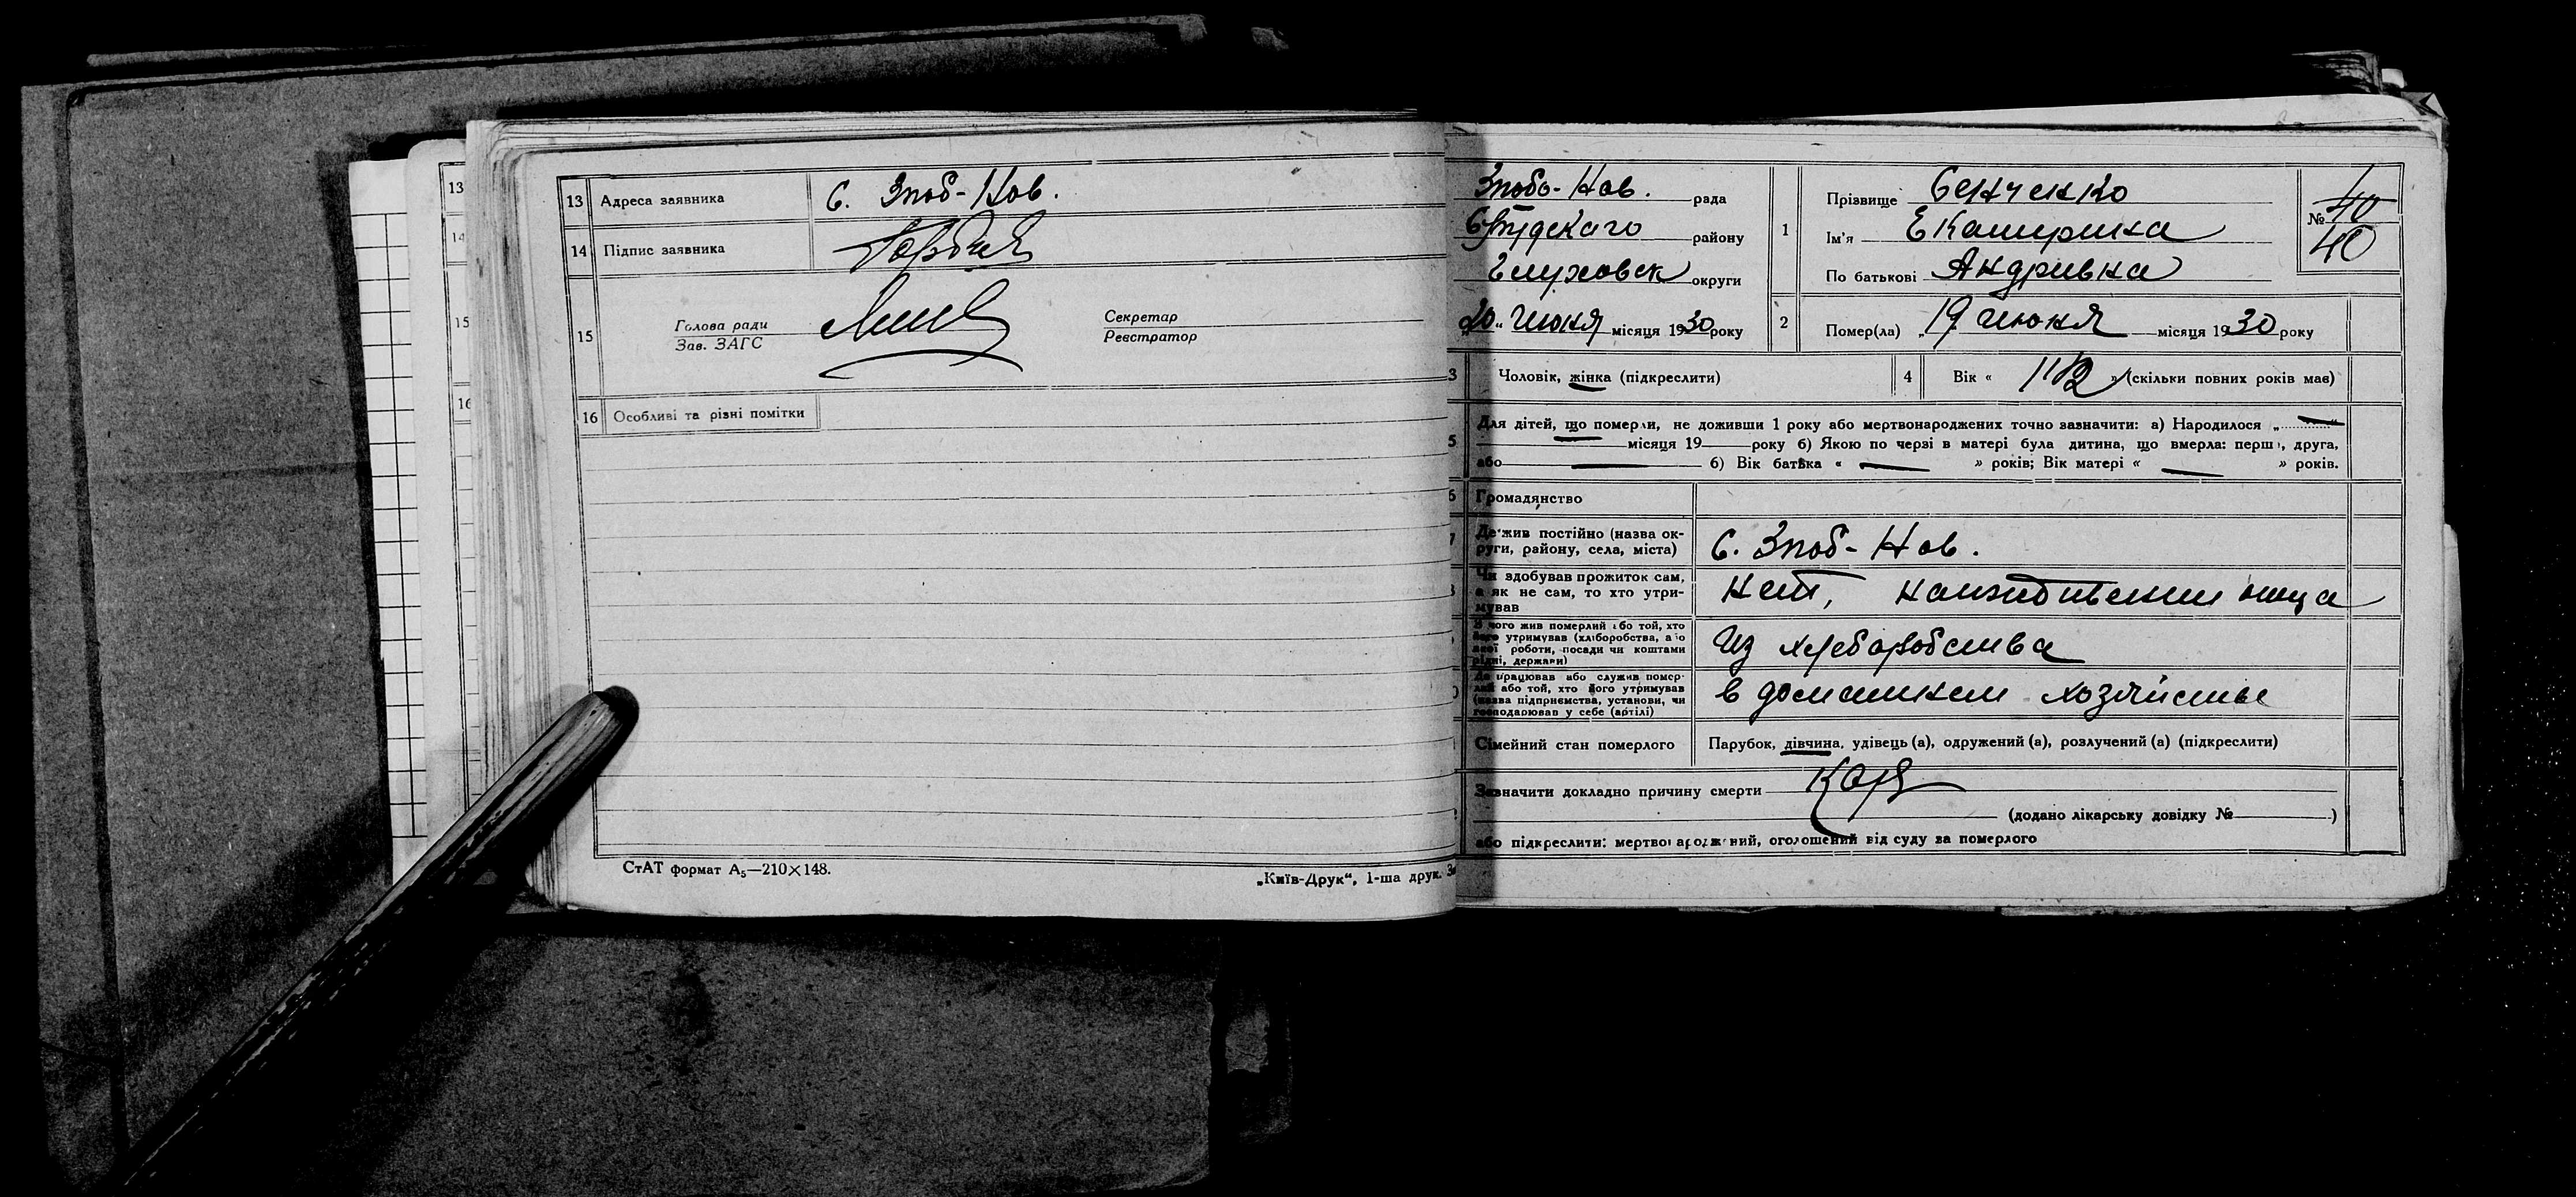 13
14
15
16
13 Адреса заявника С. Зноб-Нов.
14 Підпис заявника
15 Голова ради
Зав. ЗАГС
Секретар
Реєстратор
16 Особливі та різні помітки
СтАТ формат А5—210×148.
„Київ-Друк“, 1-ша друк.
Знобо-Нов. рада
району
Глуховск округи
„20“ Июня місяця 1930 року
1 Прізвище Сенченко
Ім'я Екатерина
По батькові Андривна
№ 40
40
2 Помер(ла) „19 Июня місяця 1930 року
3 Чоловік, жінка (підкреслити)
4 Вік « 1 1/2 » (скільки повних років мав)
5 Для дітей, що померли, не доживши 1 року або мертвонароджених точно зазначити: а) Народилося „
місяця 19 року б) Якою по черзі в матері була дитина, що вмерла: перша, друга,
або б) Вік батька « » років; Вік матері « » років.
6 Громадянство
7 Де жив постійно (назва ок-
руги, району, села, міста) С. Зноб-Нов.
Чи здобував прожиток сам,
а як не сам, то хто утри-
мував Нет,
З чого жив померлий або той, хто
його утримував (хліборобства, або
якої роботи, посади чи коштами
рідні, держави) Из хлеборобства
Де працював або служив помер-
лий або той, хто його утримував
(назва підприємства, установи, чи
господарював у себе (артілі) в домашнем хозяйстве
Сімейний стан померлого Парубок, дівчина, удівець (а), одружений (а), розлучений (а) (підкреслити)
Зазначити докладно причину смерти Корь
(додано лікарську довідку № )
або підкреслити: мертвонароджений, оголошений від суду за померлого